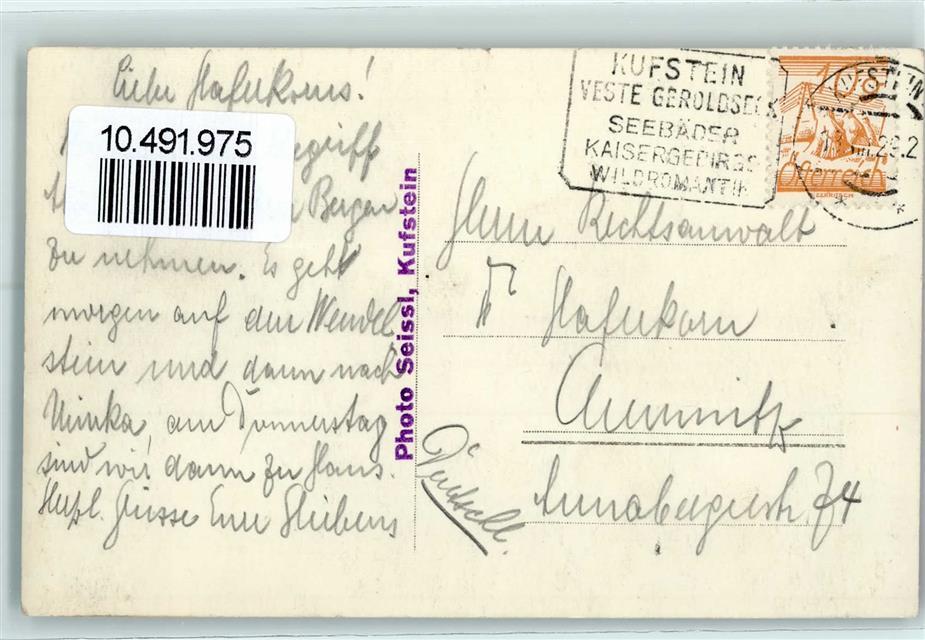 Liebe Haferkorns!
10.491.975
egriff
Bergen
zu nehmen. Es geht
morgen auf den Wendel
stein und dann nach
am Donnerstag
sind wir dann zu Haus.
Herzl. Grüsse Eure
Photo Seissl, Kufstein
KUFSTEIN
VESTE GEROLDSECK
SEEBÄDER
KAISERGEBIRGS
WILDROMANTIK
10 g
Österreich
Herrn Rechtsanwalt
Dr Haferkorn
Chemnitz
Annabergerstr. 74
Deutschl.